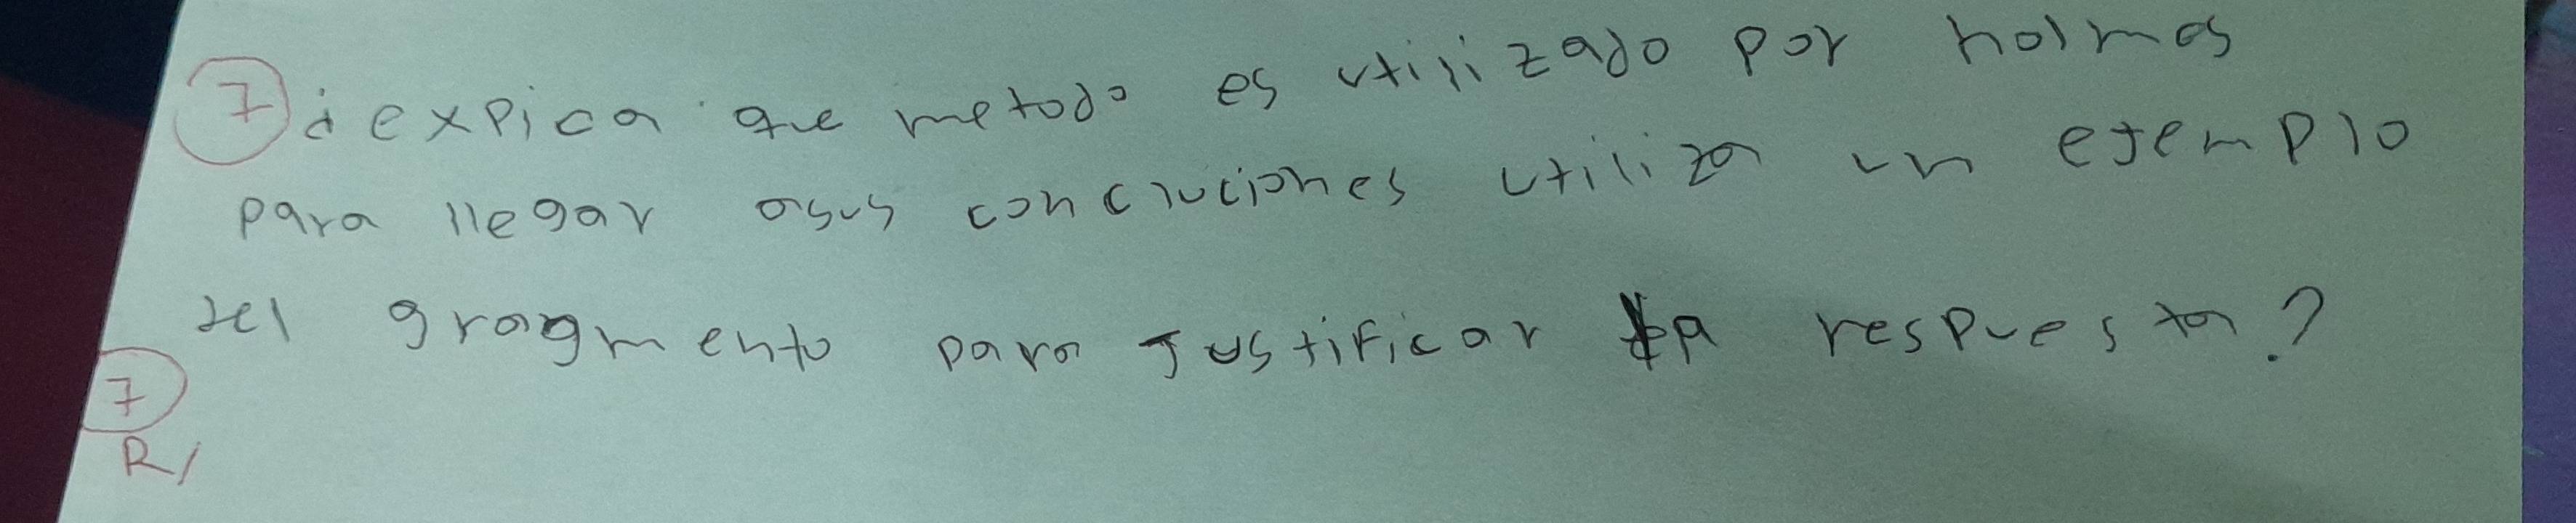 7 ¿expica que metodo es utilizado por holmes
para llegar asus concluciones utiliza un ejemplo
del gragmento para justificar la respuesta?
7
R/